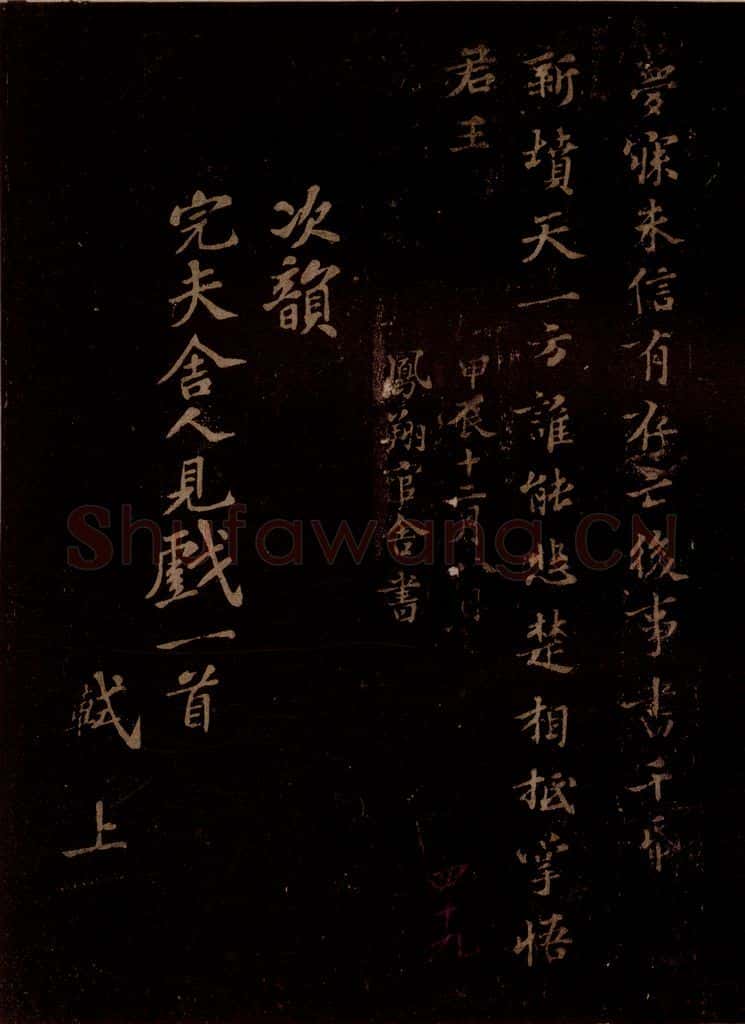 夢寐未信有存亡後事書千帋
新墳天一方誰能悲楚相抵掌悟
君王
甲辰十二月八日
鳳翔官舍書
次韻
完夫舍人見戲一首
軾上
四十九
Shufawang.CN